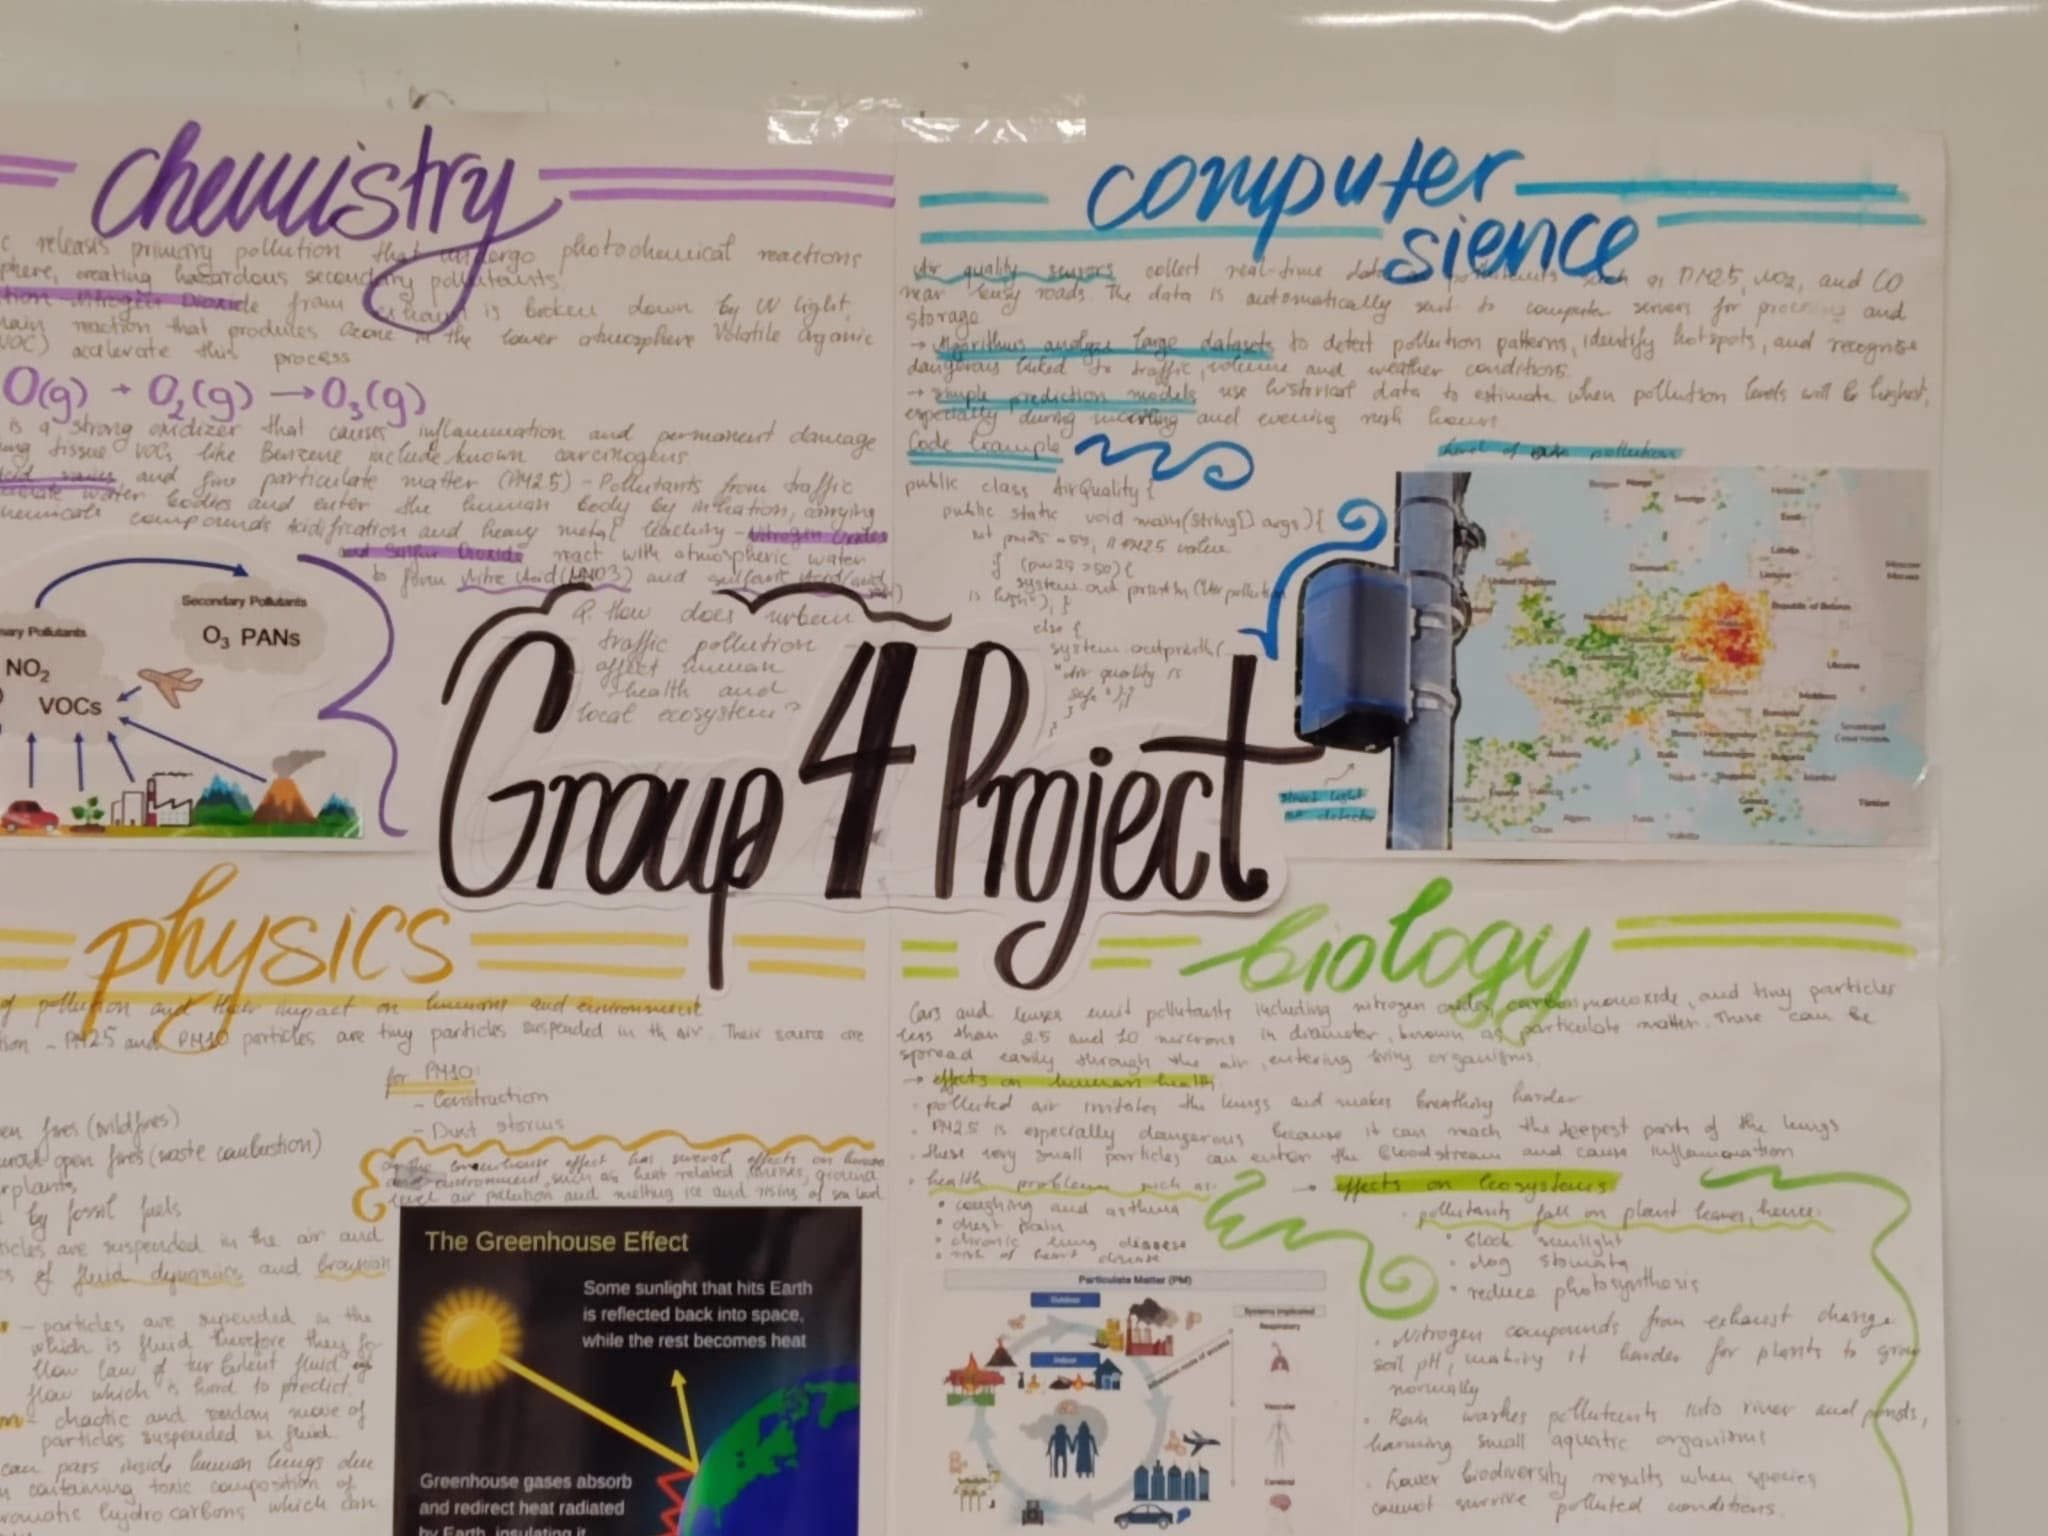 chemistry
c releases primary pollution that undergo photochemical reactions
phere, creating hazardous secondary pollutants.
tion - Nitrogen Dioxide from exhaust is broken down by UV light,
main reaction that produces Ozone in the lower atmosphere Volatile Organic
VOC) accelerate this process
O(g) + O2(g) → O3(g)
is a strong oxidizer that causes inflammation and permanent damage
ung tissue VOCs like Benzene include known carcinogens
acid rains and fine particulate matter (PM25) - Pollutants from traffic
water bodies and enter the human body by carrying
hemicals compounds Acidification and heavy metal leaching - Nitrogen Oxides
and Sulfur Dioxide react with atmospheric water
to form Nitric Acid (HNO3) and
Secondary Pollutants
O3 PANs
ary Pollutants
NO2
VOCs
Q. How does urban
traffic pollution
affect human
health and
local ecosystem?
Group 4 Project
computer
sience
Air quality sensors collect real-time data pollutants such as PM25, NO2, and CO
near busy roads. The data is automatically sent to computer servers for processing and
storage
→ Algorithms analyze large datasets to detect pollution patterns, identify hotspots, and recognise
dangerous linked to traffic, volume and weather conditions.
→ Simple prediction models use historical data to estimate when pollution levels will be highest,
especially during morning and evening rush hours
Code Example
public class AirQuality {
public static void main(String[] args) {
int pm25 = 55; // PM25 value
if (pm25 > 50) {
system.out.println ("Air pollution
is high"); }
else {
system.outprintln(
"Air quality is
safe"); }
}
}
Level of air pollution
street light
detector
United Kingdom
Latvija
Republic of Belarus
Türkiye
physics
of pollution and their impact on humans and environment
tion - PM25 and PM10 particles are tiny particles suspended in th air. Their source are
for PM10:
- Construction
- Dust storms
en fires (wildfires)
open fires (waste combustion)
rplants
by fossil fuels
ticles are suspended in the air and
s of fluid dynamics and Brownian
- particles are supended in the
which is fluid therefore they fo
llow law of turbulent fluid
flow which is hard to predict.
- chaotic and random move of
particles suspended in fluid.
can pass inside human lungs due
containing toxic composition of
romatic hydrocarbons which can
greenhouse effect has several effects on human
and environment, such as heat related illnesses, ground
level air pollution and melting ice and rising of sea level
The Greenhouse Effect
Some sunlight that hits Earth
is reflected back into space,
while the rest becomes heat
Greenhouse gases absorb
and redirect heat radiated
by Earth, insulating it
biology
Cars and buses emit pollutants including nitrogen oxides, carbon monoxide, and tiny particles
less than 2.5 and 10 microns in diameter, known as particulate matter. These can be
spread easily through the air, entering living organisms.
→ effects on human health
• polluted air irritates the lungs and makes breathing harder
• PM2.5 is especially dangerous because it can reach the deepest parts of the lungs
• these very small particles can enter the bloodstream and cause inflammation
• health problems such as:
• coughing and asthma
• chest pain
• chronic lung disease
• risk of heart disease
→ effects on ecosystems
• pollutants fall on plant leaves, hence:
• block sunlight
• clog stomata
• reduce photosynthesis
• Nitrogen compounds from exhaust change
soil pH, making it harder for plants to grow
normally
• Rain washes pollutants into river and ponds,
harming small aquatic organisms
• Lower biodiversity results when species
cannot survive polluted conditions.
Particulate Matter (PM)
Outdoor
Indoor
Systems implicated
Respiratory
Vascular
Cerebral